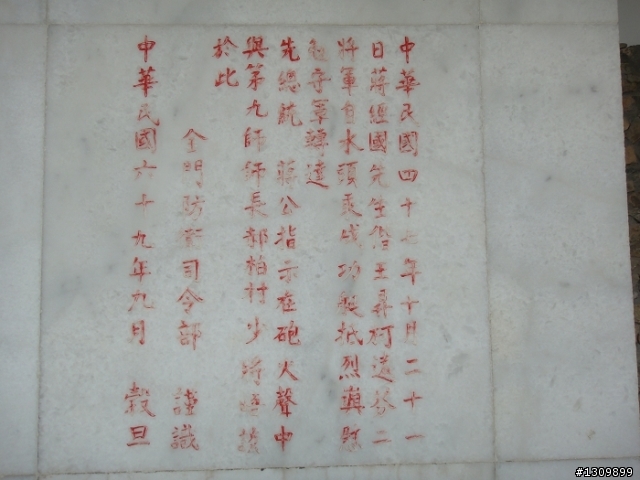 中華民國四十七年十月二十一
日蔣經國先生偕王昇柯遠芬二
將軍自水頭乘成功艇抵烈嶼慰
守軍轉達
先總統 蔣公指示在砲火聲中
與第九師師長郝柏村少將晤談
於此
金門防衛司令部 謹識
中華民國六十九年九月 穀旦
#1309899